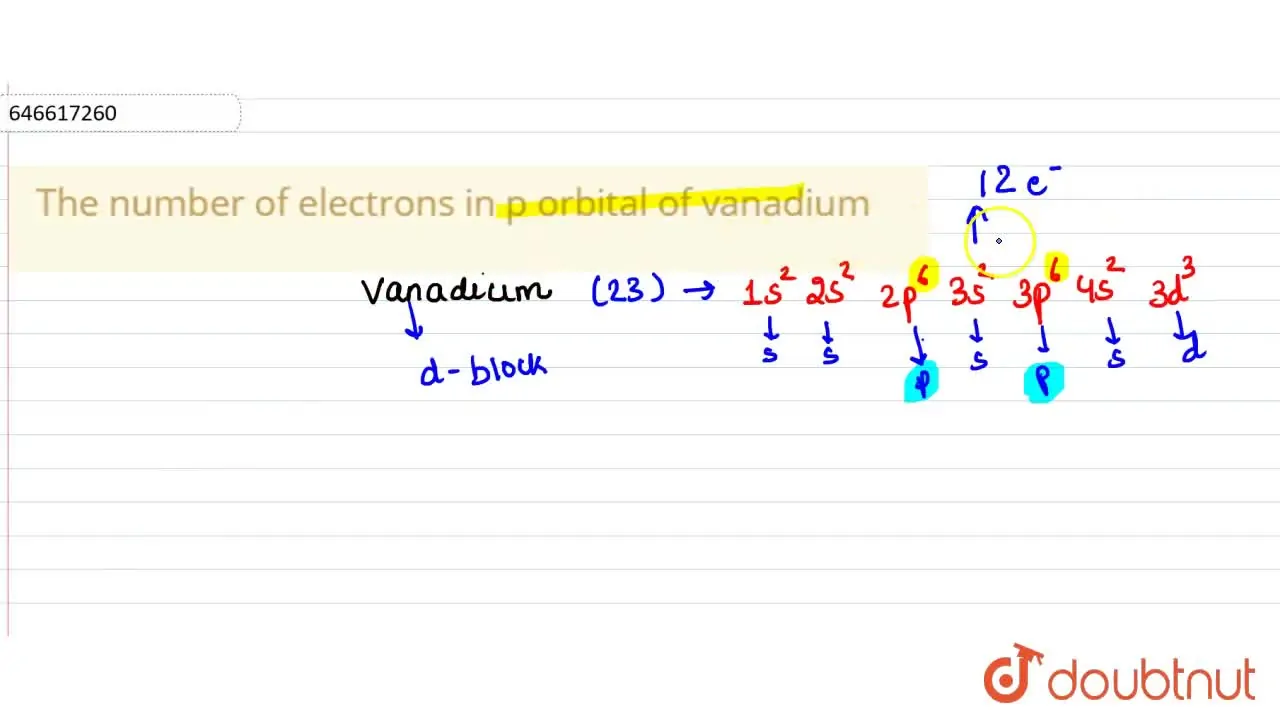 646617260
12 e⁻
The number of electrons in p orbital of vanadium
Vanadium (23) → 1s² 2s² 2p⁶ 3s² 3p⁶ 4s² 3d³
s s p s p s d
d-block
doubtnut